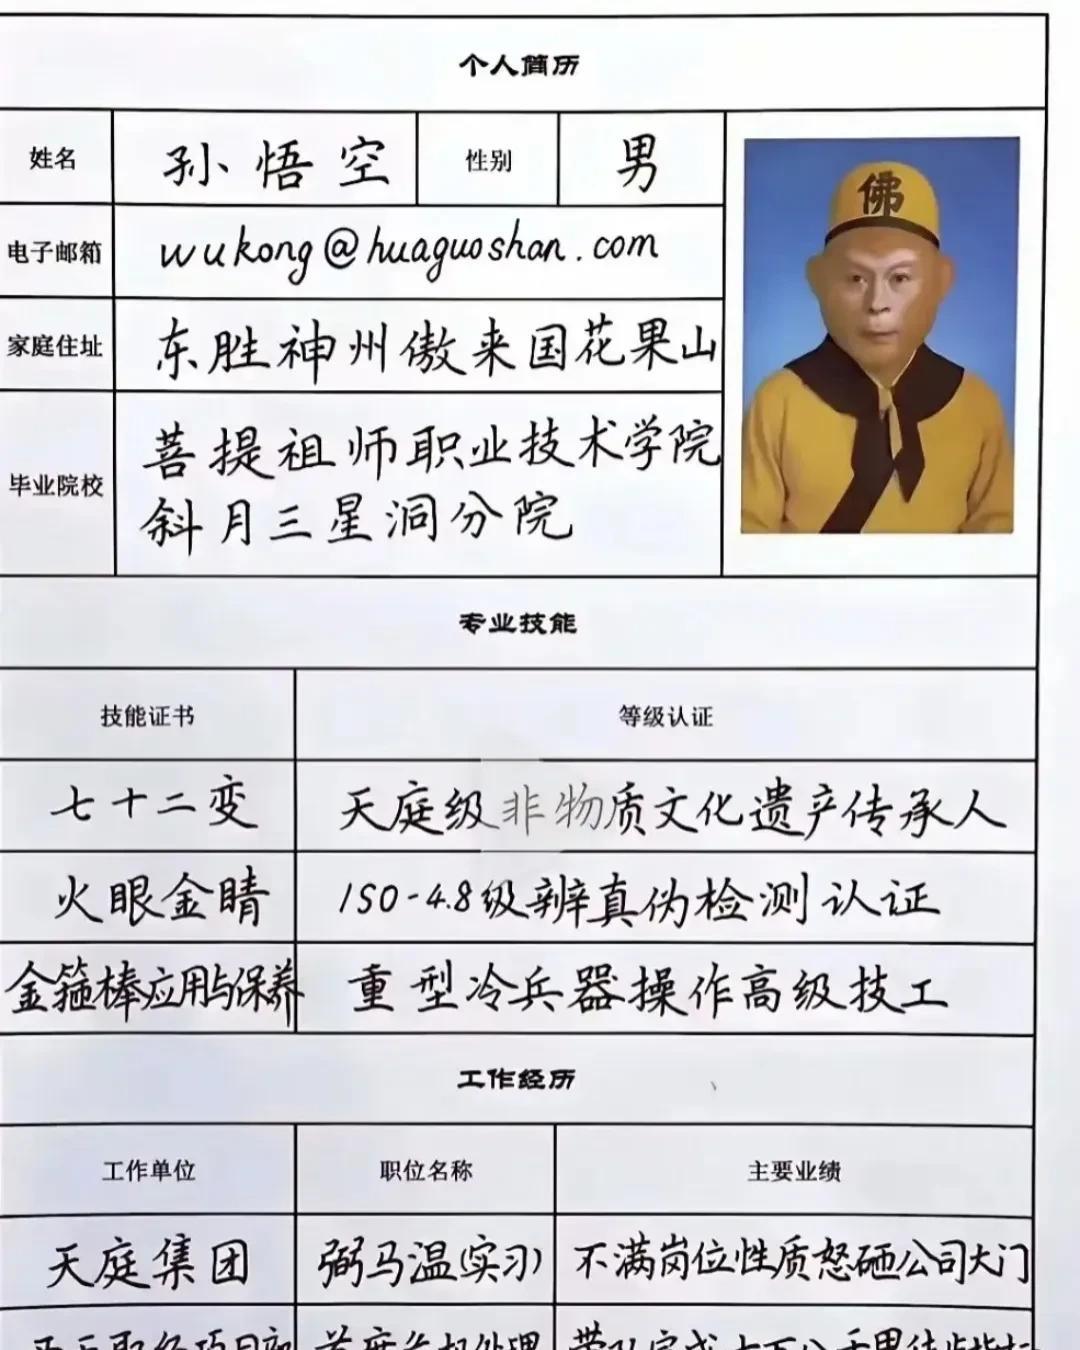 个人简历
姓名 孙悟空 性别 男
佛
电子邮箱 wukong@huaguoshan.com
家庭住址 东胜神州傲来国花果山
毕业院校 菩提祖师职业技术学院
斜月三星洞分院
专业技能
技能证书 等级认证
七十二变 天庭级非物质文化遗产传承人
火眼金睛 ISO-4.8级辨真伪检测认证
金箍棒应用与保养 重型冷兵器操作高级技工
工作经历
工作单位 职位名称 主要业绩
天庭集团 弼马温(实习) 不满岗位性质怒砸公司大门